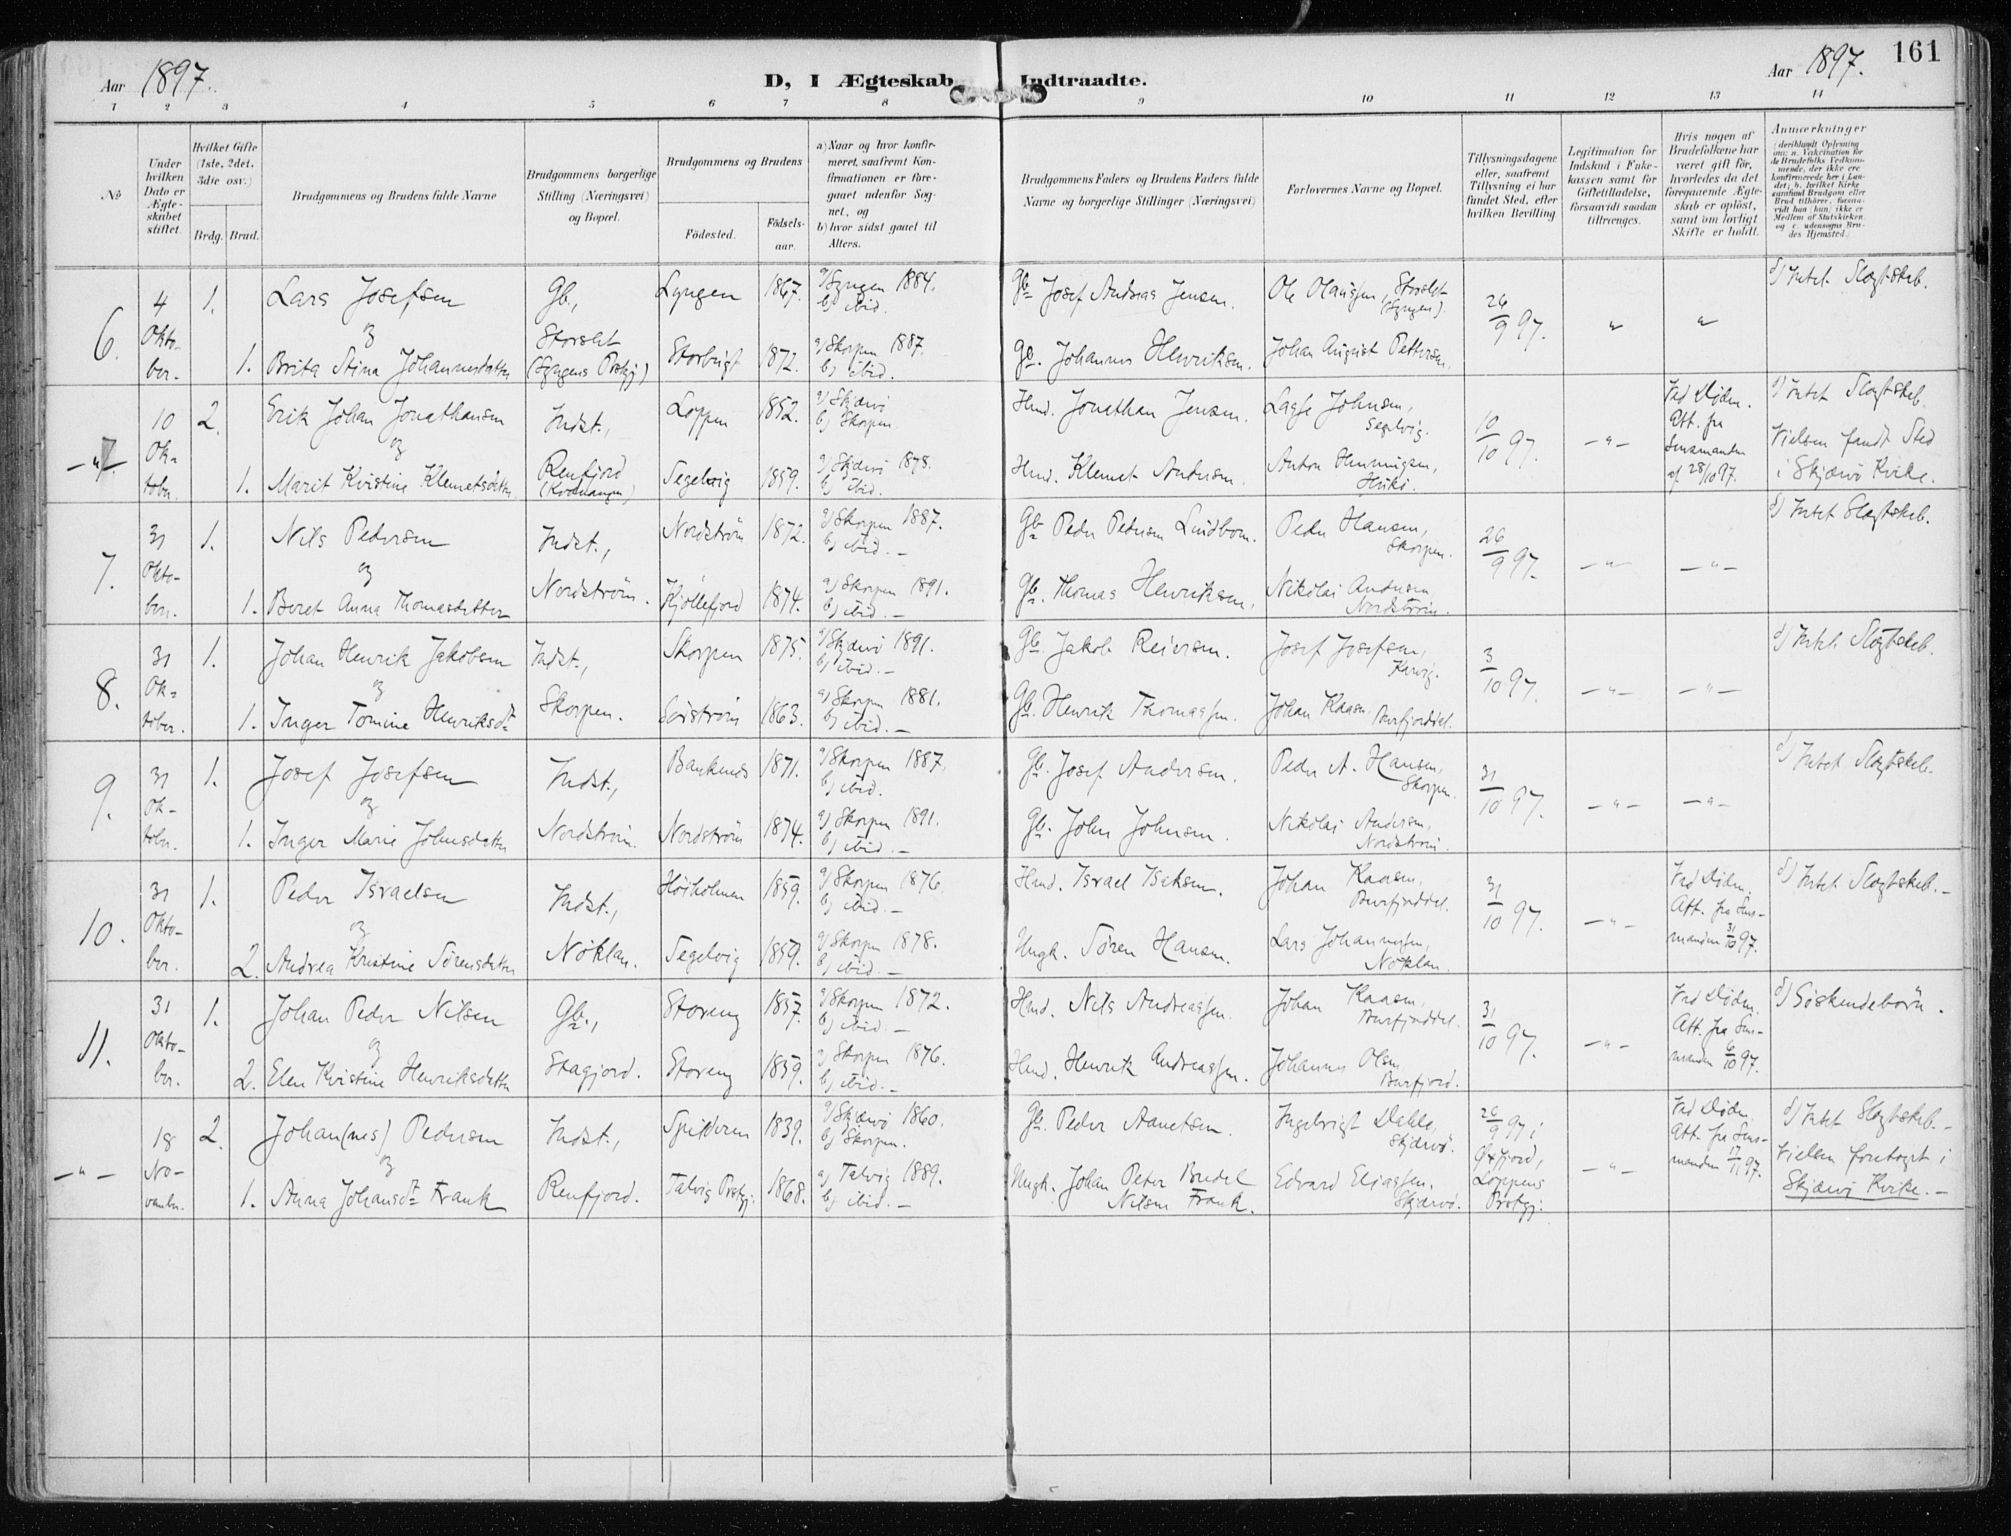 161
Aar 1897. D, I Ægteskab Indtraadte. Aar 1897.
1 2 3 4 5 6 7 8 9 10 11 12 13 14
No
Under hvilken Dato er Ægteskabet stiftet.
Hvilket Gifte (1ste, 2det, 3die osv.)
Brdg. Brud.
Brudgommens og Brudens fulde Navne
Brudgommens borgerlige Stilling (Næringsvei) og Bopæl.
Brudgommens og Brudens
Fødested. Fødselsaar.
a) Naar og hvor konfirmeret, saafremt Konfirmationen er foregaaet udenfor Sognet, og
b) hvor sidst gaaet til Alters.
Brudgommens Faders og Brudens Faders fulde Navne og borgerlige Stillinger (Næringsvei)
Forlovernes Navne og Bopæl.
Tillysningsdagene eller, saafremt Tillysning ei har fundet Sted, efter hvilken Bevilling
Legitimation for Indskud i Enkekassen samt for Giftetilladelse, forsaavidt saadan tiltrænges.
Hvis nogen af Brudefolkene har været gift før, hvorledes da det foregaaende Ægteskab er opløst, samt om lovligt Skifte er holdt.
Anmærkninger
6. 4 Oktober. 1. Lars Josefsen Gb., Lyngen 1867. a) Lyngen 1884. b) ibid. Gb. Josef Andreas Jensen. Ole Olaussen, Storslet (Lyngen). 26/9 97. " " d) Intet Slægtskab.
og Storslet
1. Brita Stina Johannesdatter (Lyngens Prstgj) Storbugt 1872. a) Skorpen 1887. b) ibid. Gb. Johannes Henriksen. Johan August Pettersen.
-"- 7 10 Oktober. 2. Erik Johan Jonathansen Indst., Loppen 1852. a) Skjærvø b) Skorpen. Hmd. Jonathan Jensen. Johnsen, Segelvig. 10/10 97. -"- Ved Døden. Att. fra Lensmanden af 28/10 97. d) Intet Slægtskab.
og
1. Marit Kristine Klemetsdatter Renfjord (Kvænangen) Segelvig 1859. a) Skjærvø 1878. b) ibid. Hmd. Klemet Andersen. Anton Henningsen, Vielsen fandt Sted i Skjærvø Kirke.
7. 31 Oktober. 1. Nils Pedersen Indst., Nordstrøm 1872. a) Skorpen 1887. b) ibid.- Gb. Peder Pedersen Lindbom. Peder Hansen, Skorpen. 26/9 97. -"- -"- d) Intet Slægtskab.
og
1. Beret Anna Thomasdatter Nordstrøm. Kjøllefjord 1874. a) Skorpen 1891. b) ibid.- Gb. Thomas Henriksen. Nikolai Andersen, Nordstrøm.
8. 31 Oktober. 1. Johan Henrik Jakobsen Indst., Skorpen 1875. a) Skjærvø 1891. b) ibid.- Gb. Jakob Reiersen. Josef Josefsen, 3/10 97. -"- -"- d) Intet Slægtskab.
og
1. Inger Tomine Henriksdt Skorpen. Sørstrøm 1863. a) Skorpen 1881. b) ibid.- Gb. Henrik Thomassen. Johan Kaasen, Burfjorddal.
9. 31 Oktober. 1. Josef Josefsen Indst., 1871. a) Skorpen 1887. b) ibid. Gb. Josef Andersen. Peder A. Hansen, Skorpen. 31/10 97. -"- -"- d) Intet Slægtskab.
og
1. Inger Marie Johnsdatter Nordstrøm. Nordstrøm 1874. a) Skorpen 1891. b) ibid.- Gb. John Johnsen. Nikolai Andersen, Nordstrøm.
10. 31 Oktober. 1. Peder Israelsen Indst., Høiholmen 1859. a) Skorpen 1876. b) ibid.- Hmd. Israel Isaksen. Johan Kaasen, Burfjorddal. 31/10 97. -"- Ved Døden. Att. fra Lensmanden 31/10 97. d) Intet Slægtskab.-
og
2. Andrea Kristine Sørensdatter Nøklan. Segelvig 1859. a) Skorpen 1878. b) ibid.- Ungk. Søren Hansen. Lars Johannesen, Nøklan.
11. 31 Oktober. 1. Johan Peder Nilsen Gb., Storeng 1857. a) Skorpen 1872. b) ibid.- Hmd. Nils Andreassen. Johan Kaasen, Burfjorddal. 31/10 97. -"- Ved Døden. Att. fra Lensmanden 6/10 97. d) Søskendebørn.
og
2. Elen Kristine Henriksdatter Stagjord. Storeng 1859. a) Skorpen 1876. b) ibid.- Hmd. Henrik Andreassen. Johannes Olsen, Burfjord.
-"- 18 November. 2. Johan(nes) Pedersen Indst., Spilderen 1839. a) Skjærvø 1860. b) Skorpen. Gb. Peder Ingebrigt Dahle, Skjærvø. 26/9 97 i Øxfjord, Loppens Prstgj. -"- Ved Døden. Att. fra Lensmanden 17/11 97. d) Intet Slægtskab.-
og
1. Anna Johansdt Frank Renfjord. Talvig Prstgj. 1868. a) Talvig 1889. b) ibid.- Ungk. Johan Peter Nilsen Frank. Edvard Eliassen, Skjærvø. Vielsen foretaget i Skjærvø Kirke.-